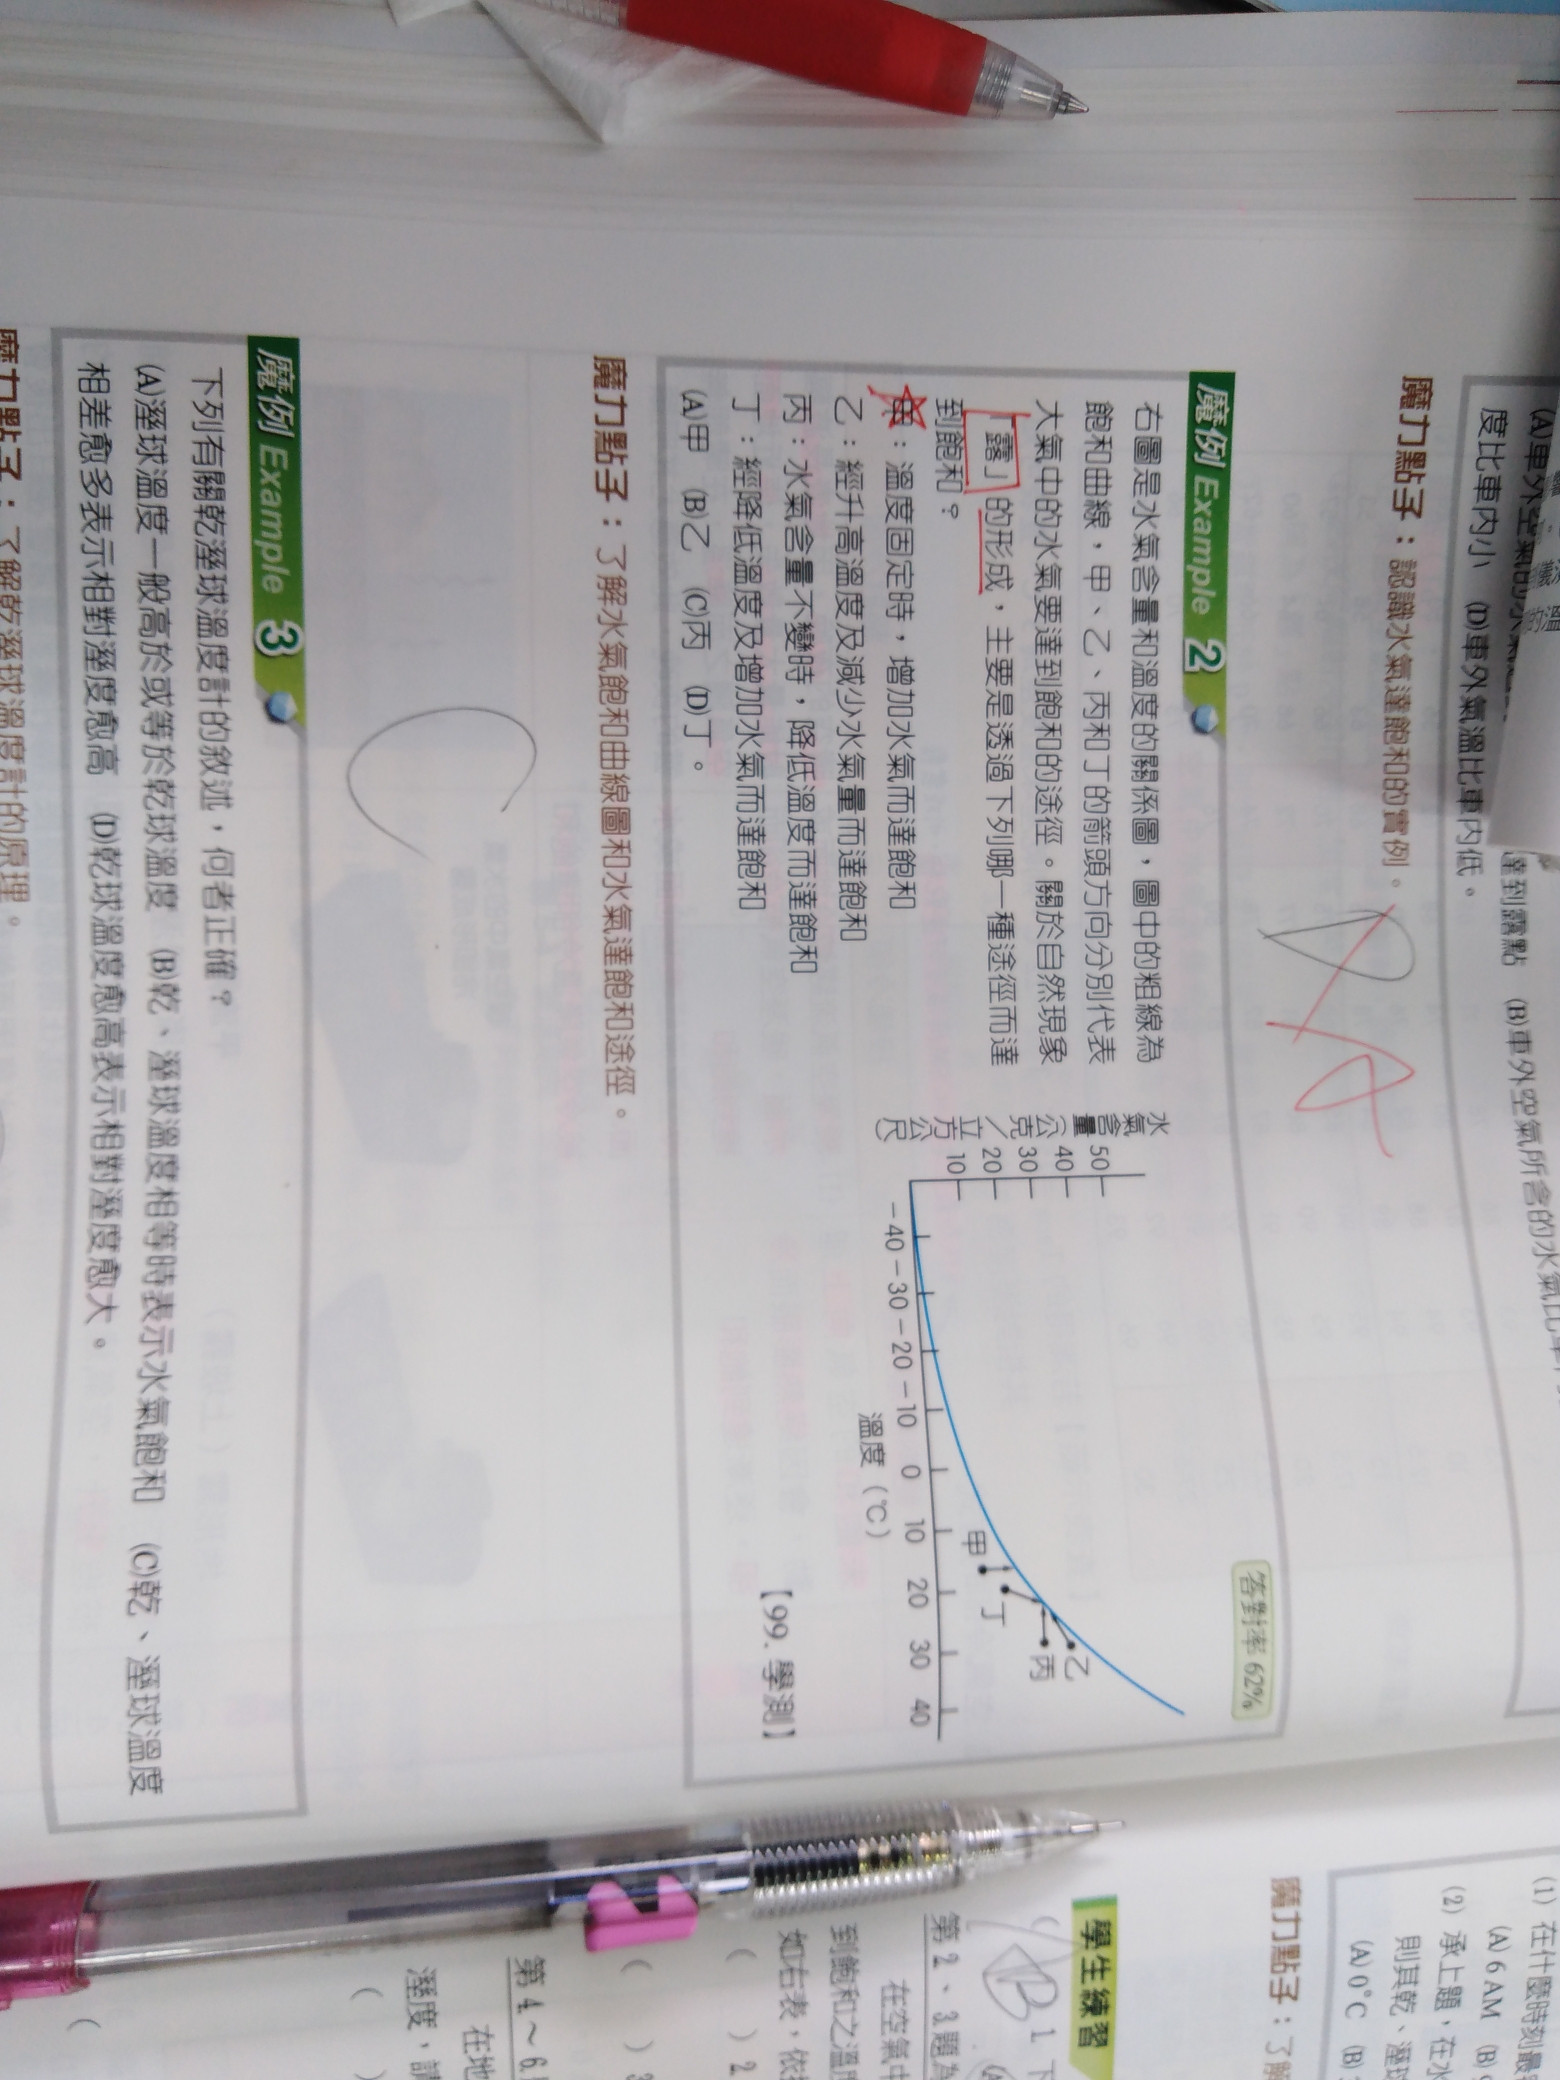 (A)車外空氣的水氣
達到露點 (B)車外空氣所含的水氣比車
度比車內小 (D)車外氣溫比車內低。
魔力點子：認識水氣達飽和的實例。
A
魔例 Example 2
答對率 62%
右圖是水氣含量和溫度的關係圖，圖中的粗線為
飽和曲線，甲、乙、丙和丁的箭頭方向分別代表
大氣中的水氣要達到飽和的途徑。關於自然現象
「露」的形成，主要是透過下列哪一種途徑而達
到飽和？
甲：溫度固定時，增加水氣而達飽和
乙：經升高溫度及減少水氣量而達飽和
丙：水氣含量不變時，降低溫度而達飽和
丁：經降低溫度及增加水氣而達飽和
(A)甲 (B)乙 (C)丙 (D)丁。
【99. 學測】
水氣含量（公克／立方公尺）
50
40
30
20
10
-40 -30 -20 -10 0 10 20 30 40
溫度（℃）
甲
丁
乙
丙
魔力點子：了解水氣飽和曲線圖和水氣達飽和途徑。
C
魔例 Example 3
下列有關乾溼球溫度計的敘述，何者正確？
(A)溼球溫度一般高於或等於乾球溫度 (B)乾、溼球溫度相等時表示水氣飽和 (C)乾、溼球溫度
相差愈多表示相對溼度愈高 (D)乾球溫度愈高表示相對溼度愈大。
魔力點子：了解乾溼球溫度計的原理。
(1) 在什麼時刻最
(A) 6 AM (B)
(2) 承上題，在水
則其乾、溼球
(A) 0°C (B)
魔力點子：了解
學生練習
( B ) 1. 下
第 2、3 題為
在空氣中
到飽和之溫度
如右表，依
( ) 2.
( ) 3
第 4.～6.
在地
溼度，請
( )
( )